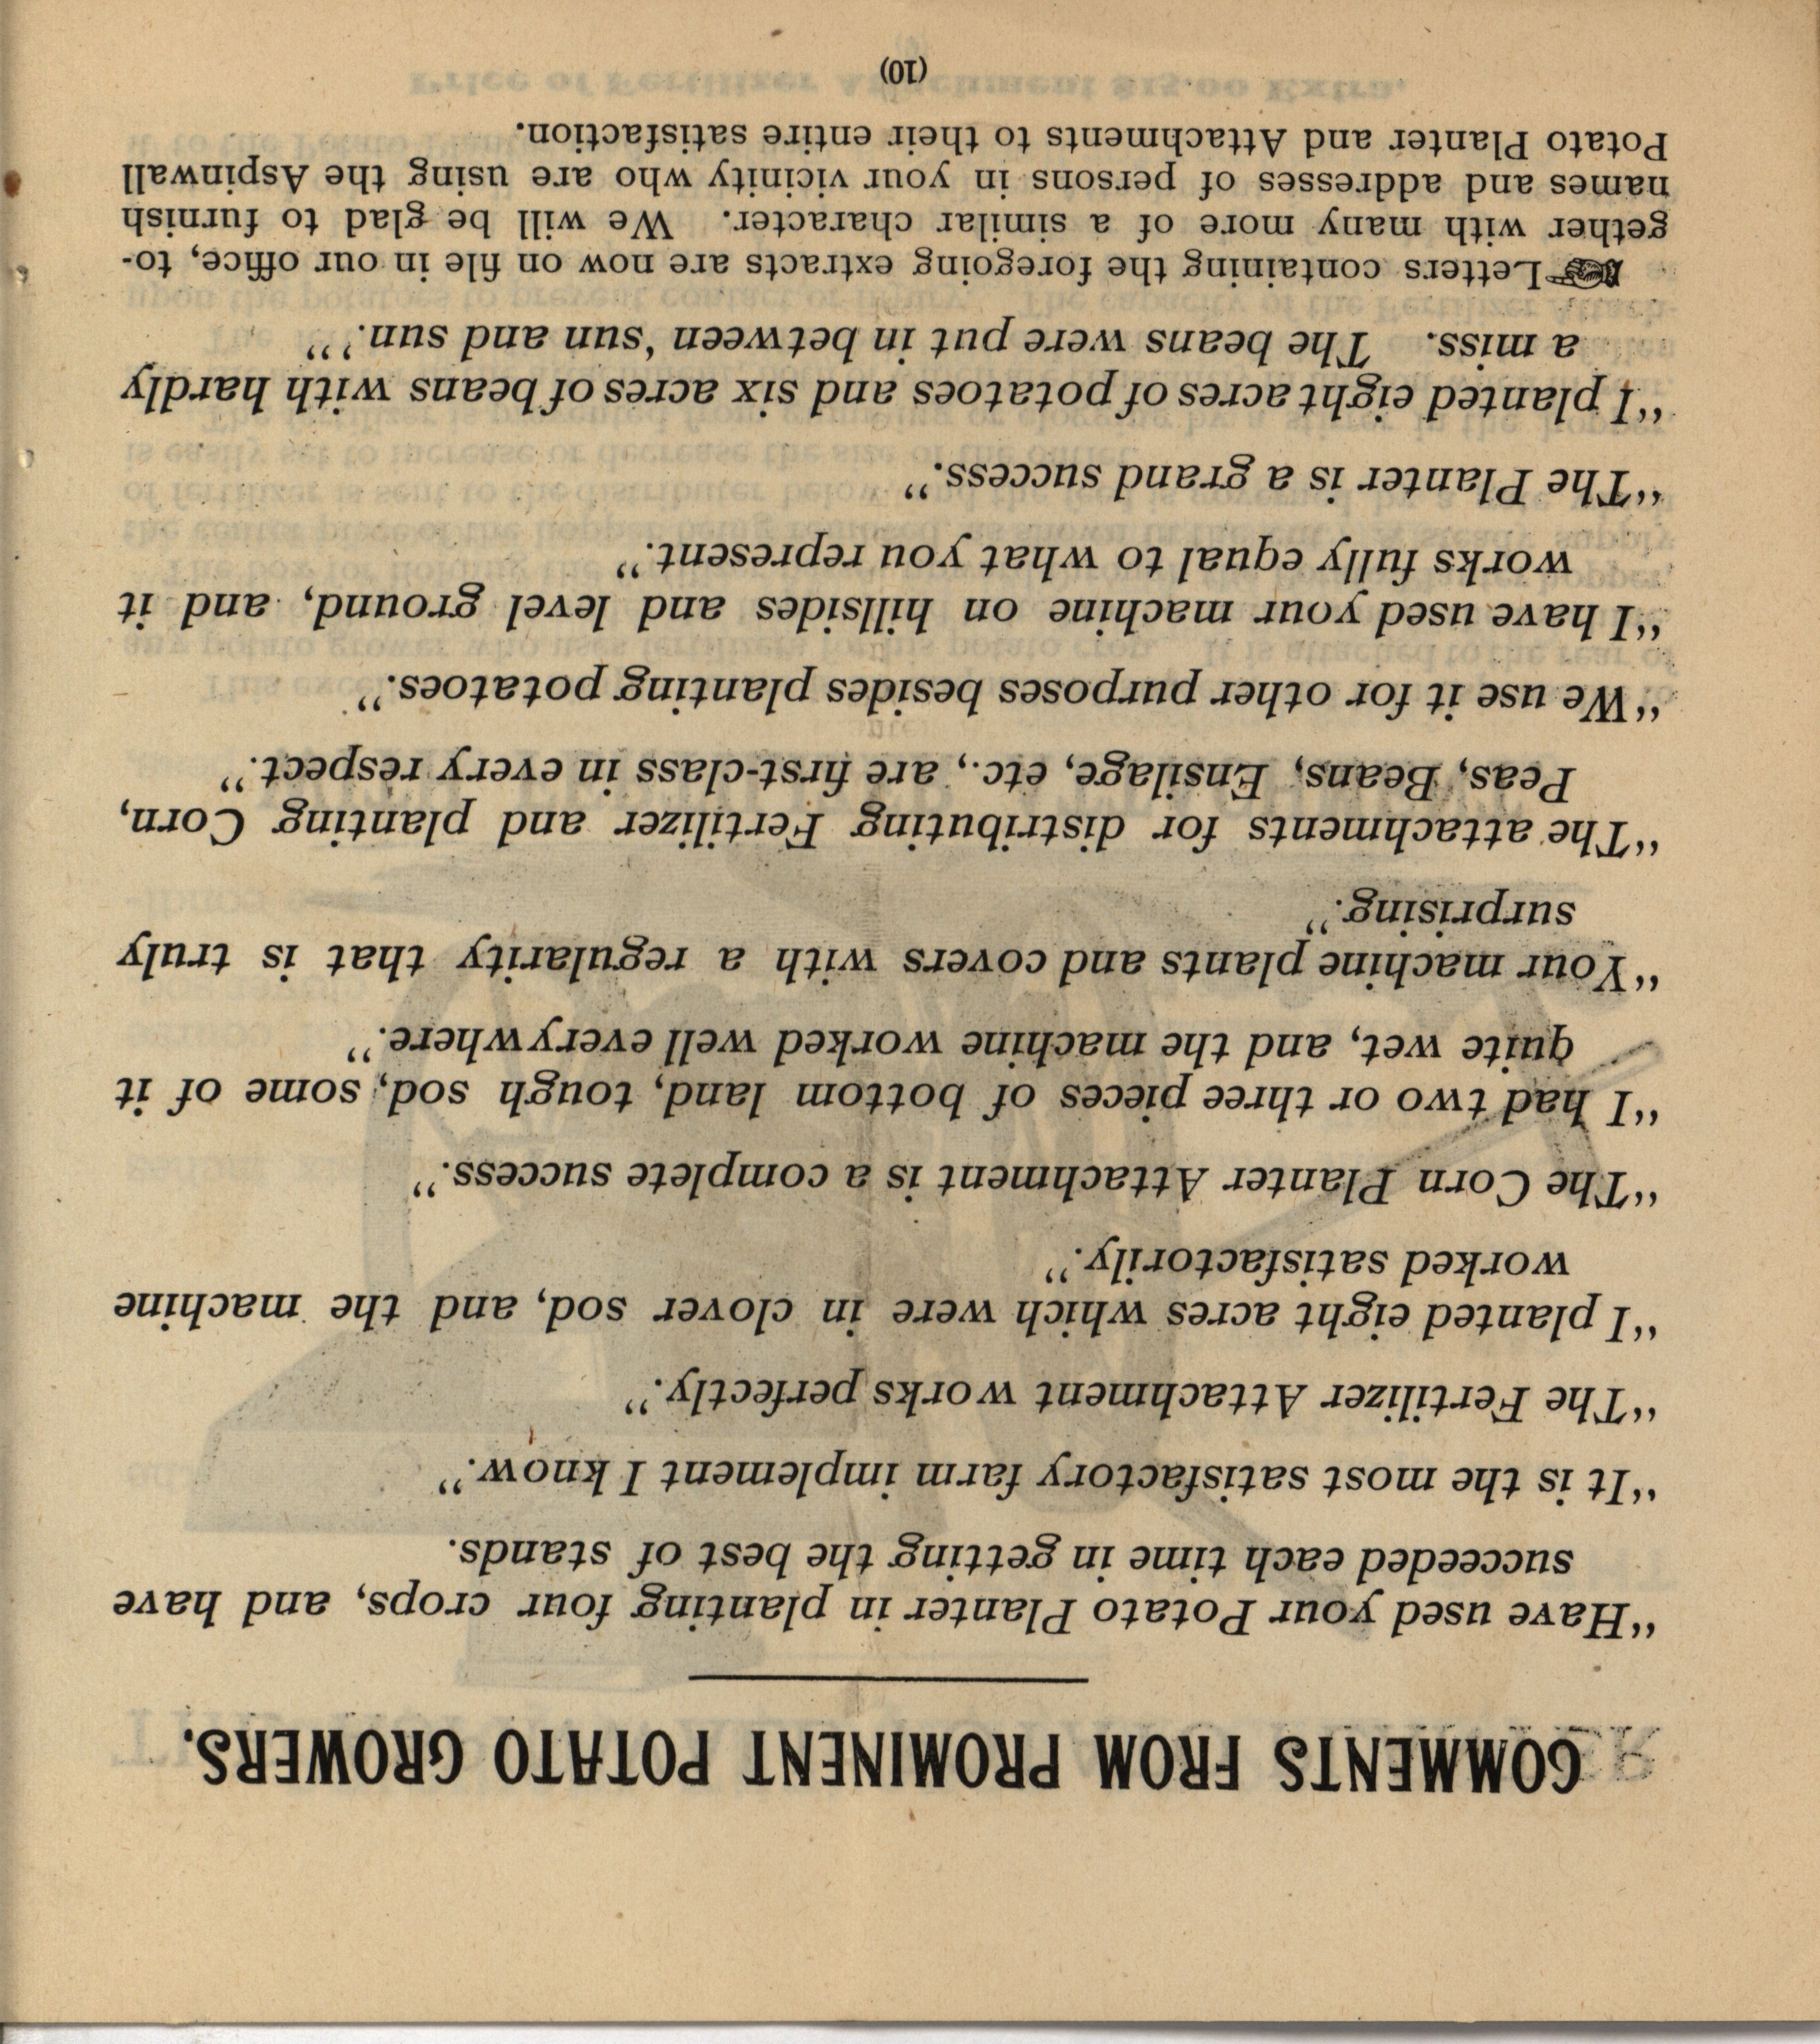 COMMENTS FROM PROMINENT POTATO GROWERS.
“Have used your Potato Planter in planting four crops, and have
succeeded each time in getting the best of stands.
“It is the most satisfactory farm implement I know.”
“The Fertilizer Attachment works perfectly.”
“I planted eight acres which were in clover sod, and the machine
worked satisfactorily.”
“The Corn Planter Attachment is a complete success.”
“I had two or three pieces of bottom land, tough sod, some of it
quite wet, and the machine worked well everywhere.”
“Your machine plants and covers with a regularity that is truly
surprising.”
“The attachments for distributing Fertilizer and planting Corn,
Peas, Beans, Ensilage, etc., are first-class in every respect.”
“We use it for other purposes besides planting potatoes.”
“I have used your machine on hillsides and level ground, and it
works fully equal to what you represent.”
“The Planter is a grand success.”
“I planted eight acres of potatoes and six acres of beans with hardly
a miss. The beans were put in between ‘sun and sun.’”
Letters containing the foregoing extracts are now on file in our office, to-
gether with many more of a similar character. We will be glad to furnish
names and addresses of persons in your vicinity who are using the Aspinwall
Potato Planter and Attachments to their entire satisfaction.
(10)